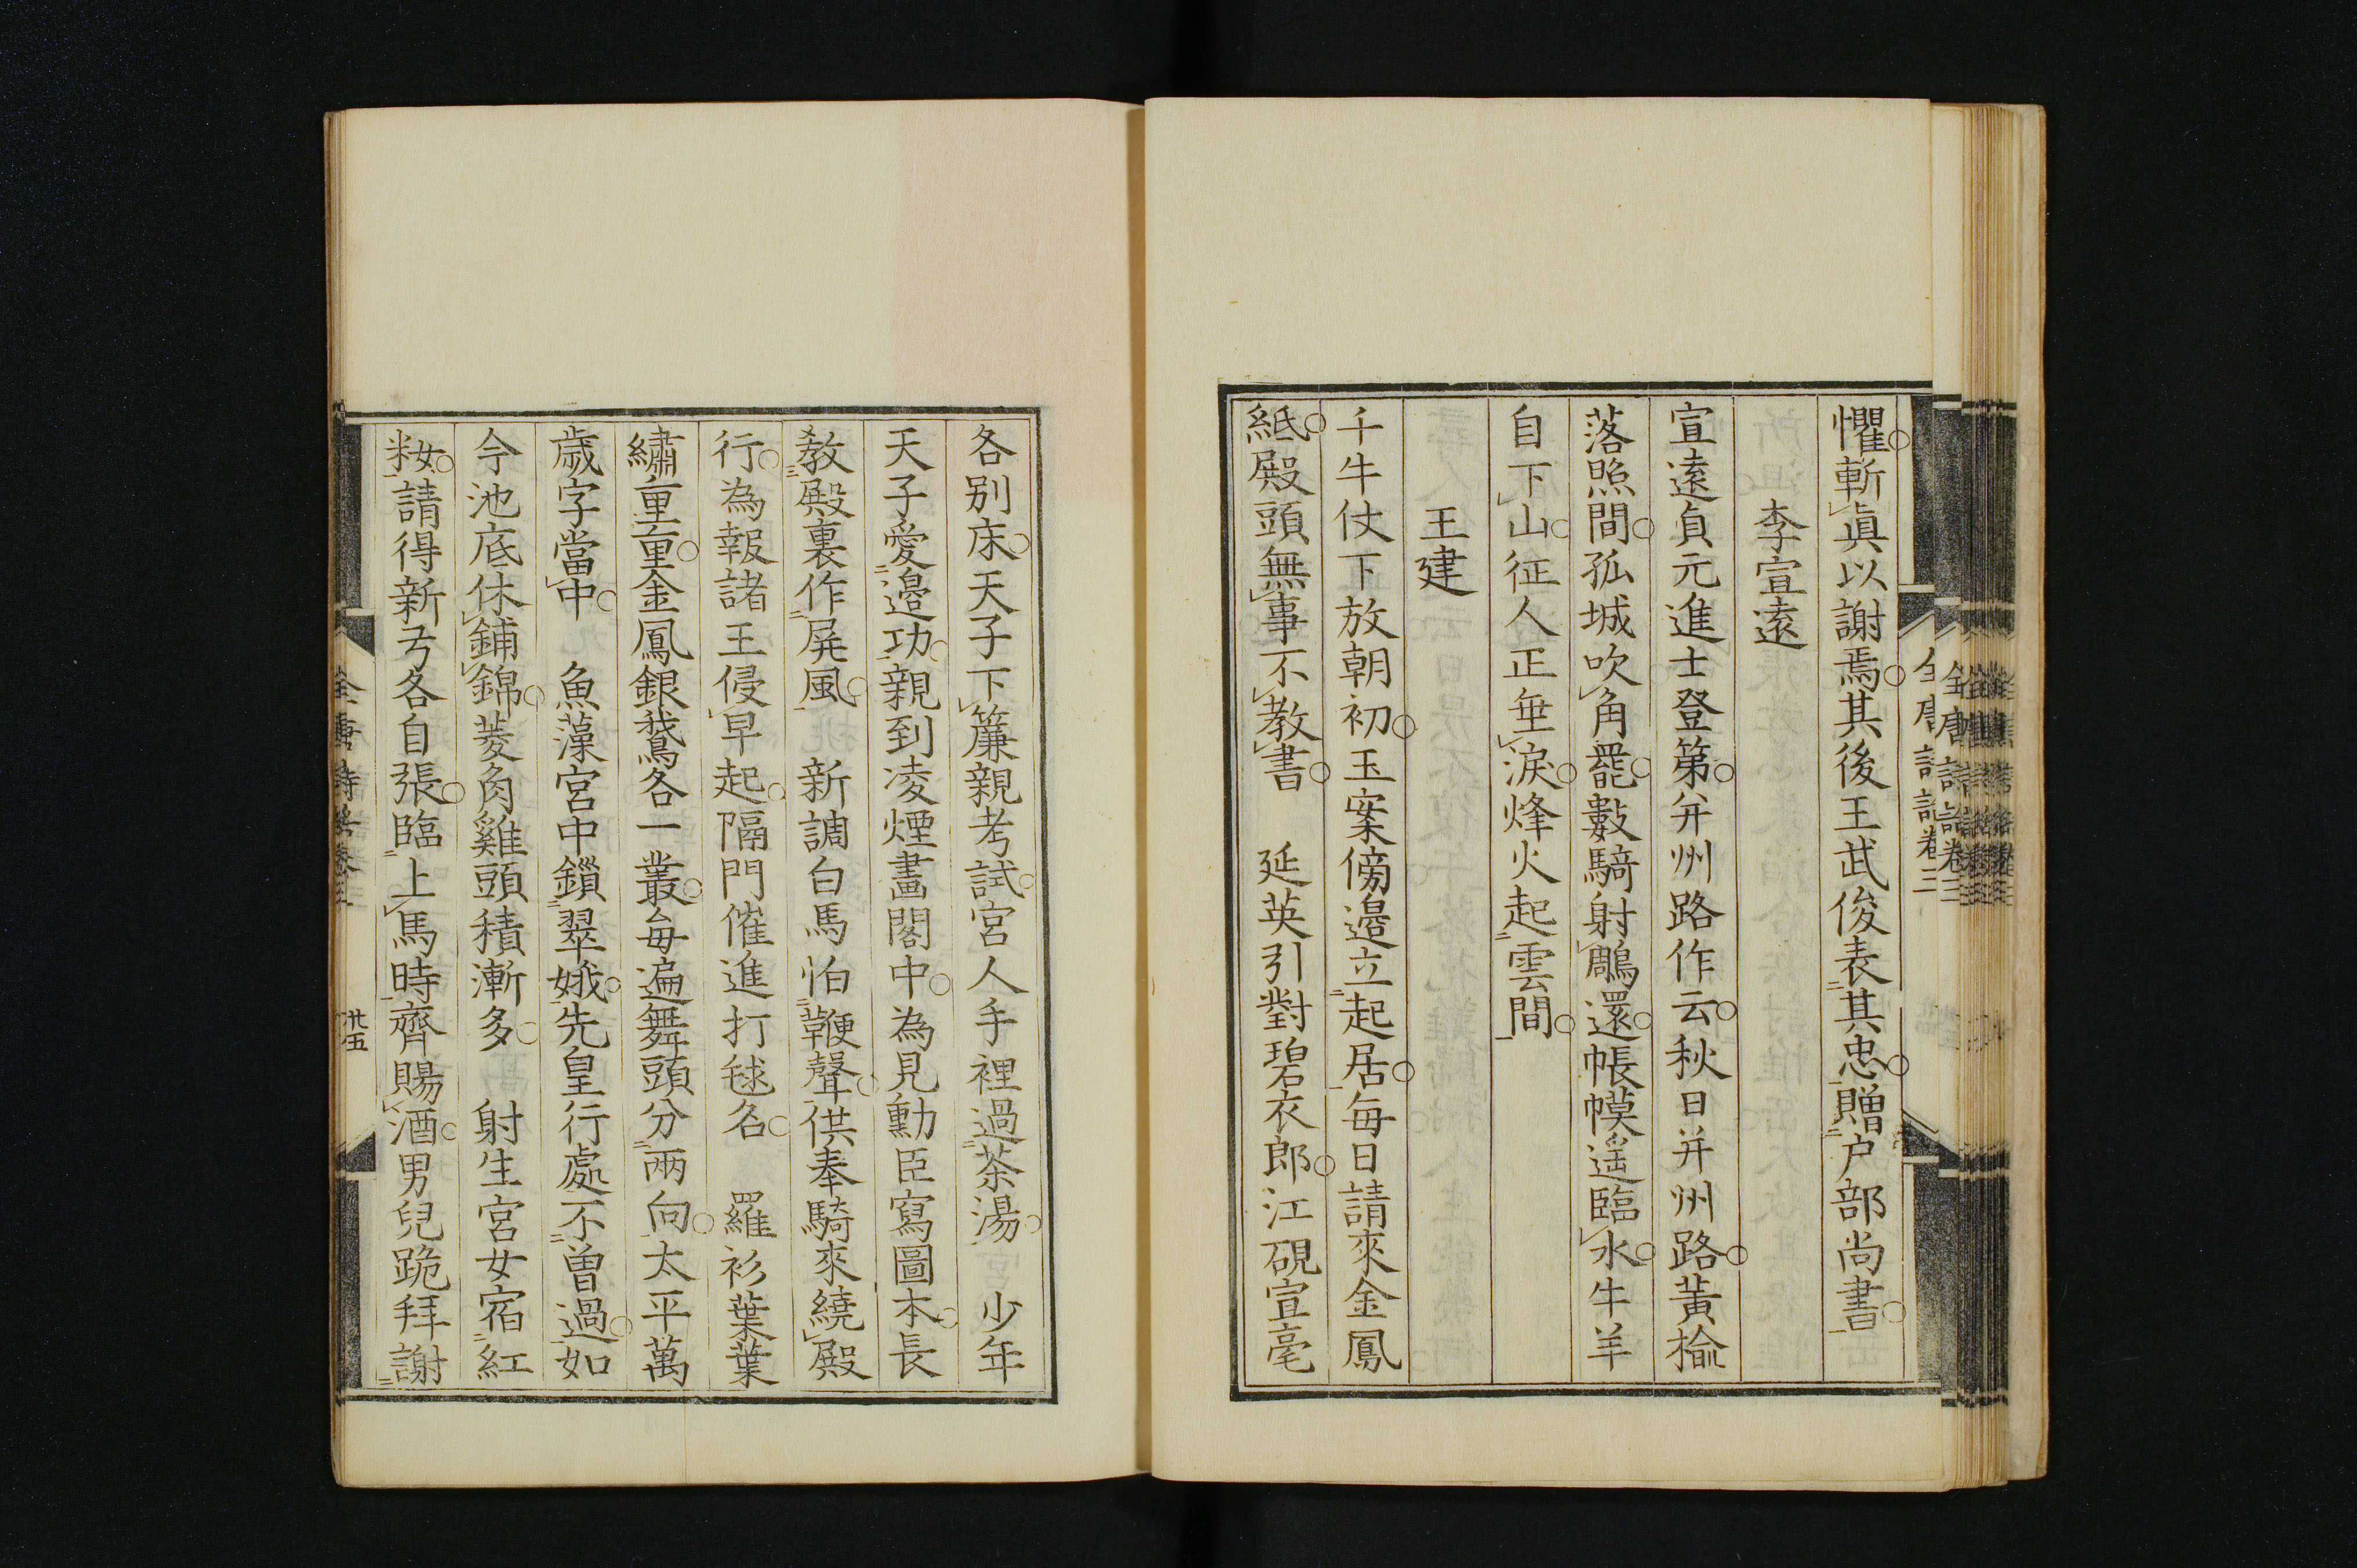 懼斬眞以謝焉其後王武俊表其忠贈户部尚書
李宣遠
宣遠貞元進士登第并州路作云秋日并州路黃榆
落照間孤城吹角罷數騎射鵰還帳幕遥臨水牛羊
自下山征人正垂淚烽火起雲間
王建
千牛仗下放朝初玉案傍邉立起居每日請來金鳳
紙殿頭無事不教書　延英引對碧衣郎江硯宣毫
各别床天子下簾親考試宮人手裡過茶湯　少年
天子愛邉功親到凌煙畫閣中為見勳臣寫圖本長
教殿裏作屏風　新調白馬怕鞭聲供奉騎來繞殿
行為報諸王侵早起隔門催進打毬名　羅衫葉葉
繡重重金鳳銀鵞各一叢每遍舞頭分兩向太平萬
歲字當中　魚藻宮中鎖翠娥先皇行處不曾過如
今池底休鋪錦菱角雞頭積漸多　射生宮女宿紅
粧請得新弓各自張臨上馬時齊賜酒男兒跪拜謝
全唐詩話卷三
卅五